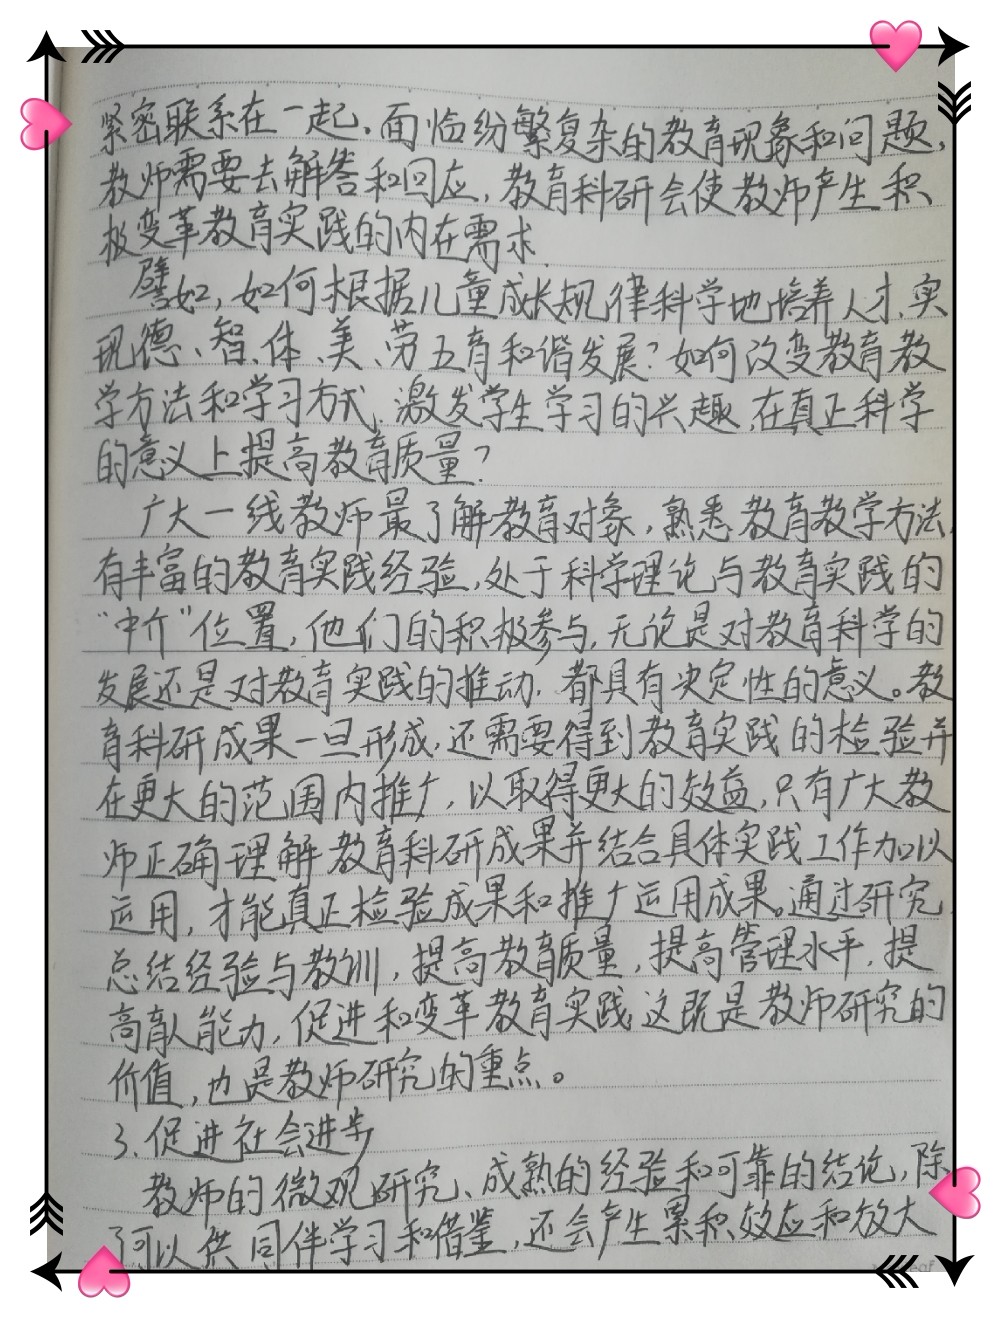 紧密联系在一起.面临纷繁复杂的教育现象和问题,
教师需要去解答和回应,教育科研会使教师产生积
极变革教育实践的内在需求.
譬如,如何根据儿童成长规律科学地培养人才,实
现德、智、体、美、劳五育和谐发展?如何改变教育教
学方法和学习方式,激发学生学习的兴趣,在真正科学
的意义上提高教育质量?
广大一线教师最了解教育对象,熟悉教育教学方法,
有丰富的教育实践经验,处于科学理论与教育实践的
“中介”位置,他们的积极参与,无论是对教育科学的
发展还是对教育实践的推动,都具有决定性的意义。教
育科研成果一旦形成,还需要得到教育实践的检验并
在更大的范围内推广,以取得更大的效益,只有广大教
师正确理解教育科研成果并结合具体实践工作加以
运用,才能真正检验成果和推广运用成果。通过研究,
总结经验与教训,提高教育质量,提高管理水平,提
高育人能力,促进和变革教育实践,这既是教师研究的
价值,也是教师研究的重点。
3.促进社会进步
教师的微观研究、成熟的经验和可靠的结论,除
了可以供同伴学习和借鉴,还会产生累积效应和放大